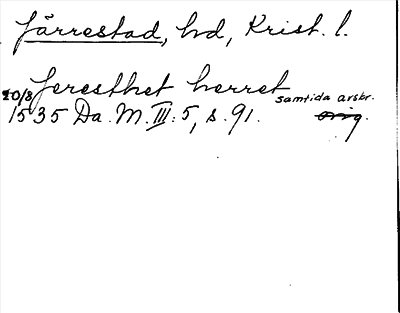 Järrestad, hd, Krist. l.
Jeresthet herret
20/8 1535 Da. M. III: 5, s. 91. samtida avskr.
orig.